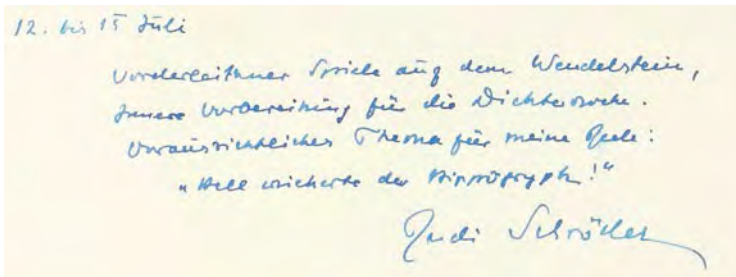 12. bis 15 Juli
Vorderleithner Spiele auf dem Wendelstein,
Innere Vorbereitung für die Dichterwoche.
Voraussichtliches Thema für meine Rede:
„Hell wieherte der Hippogryph!“
Rudi Schröder